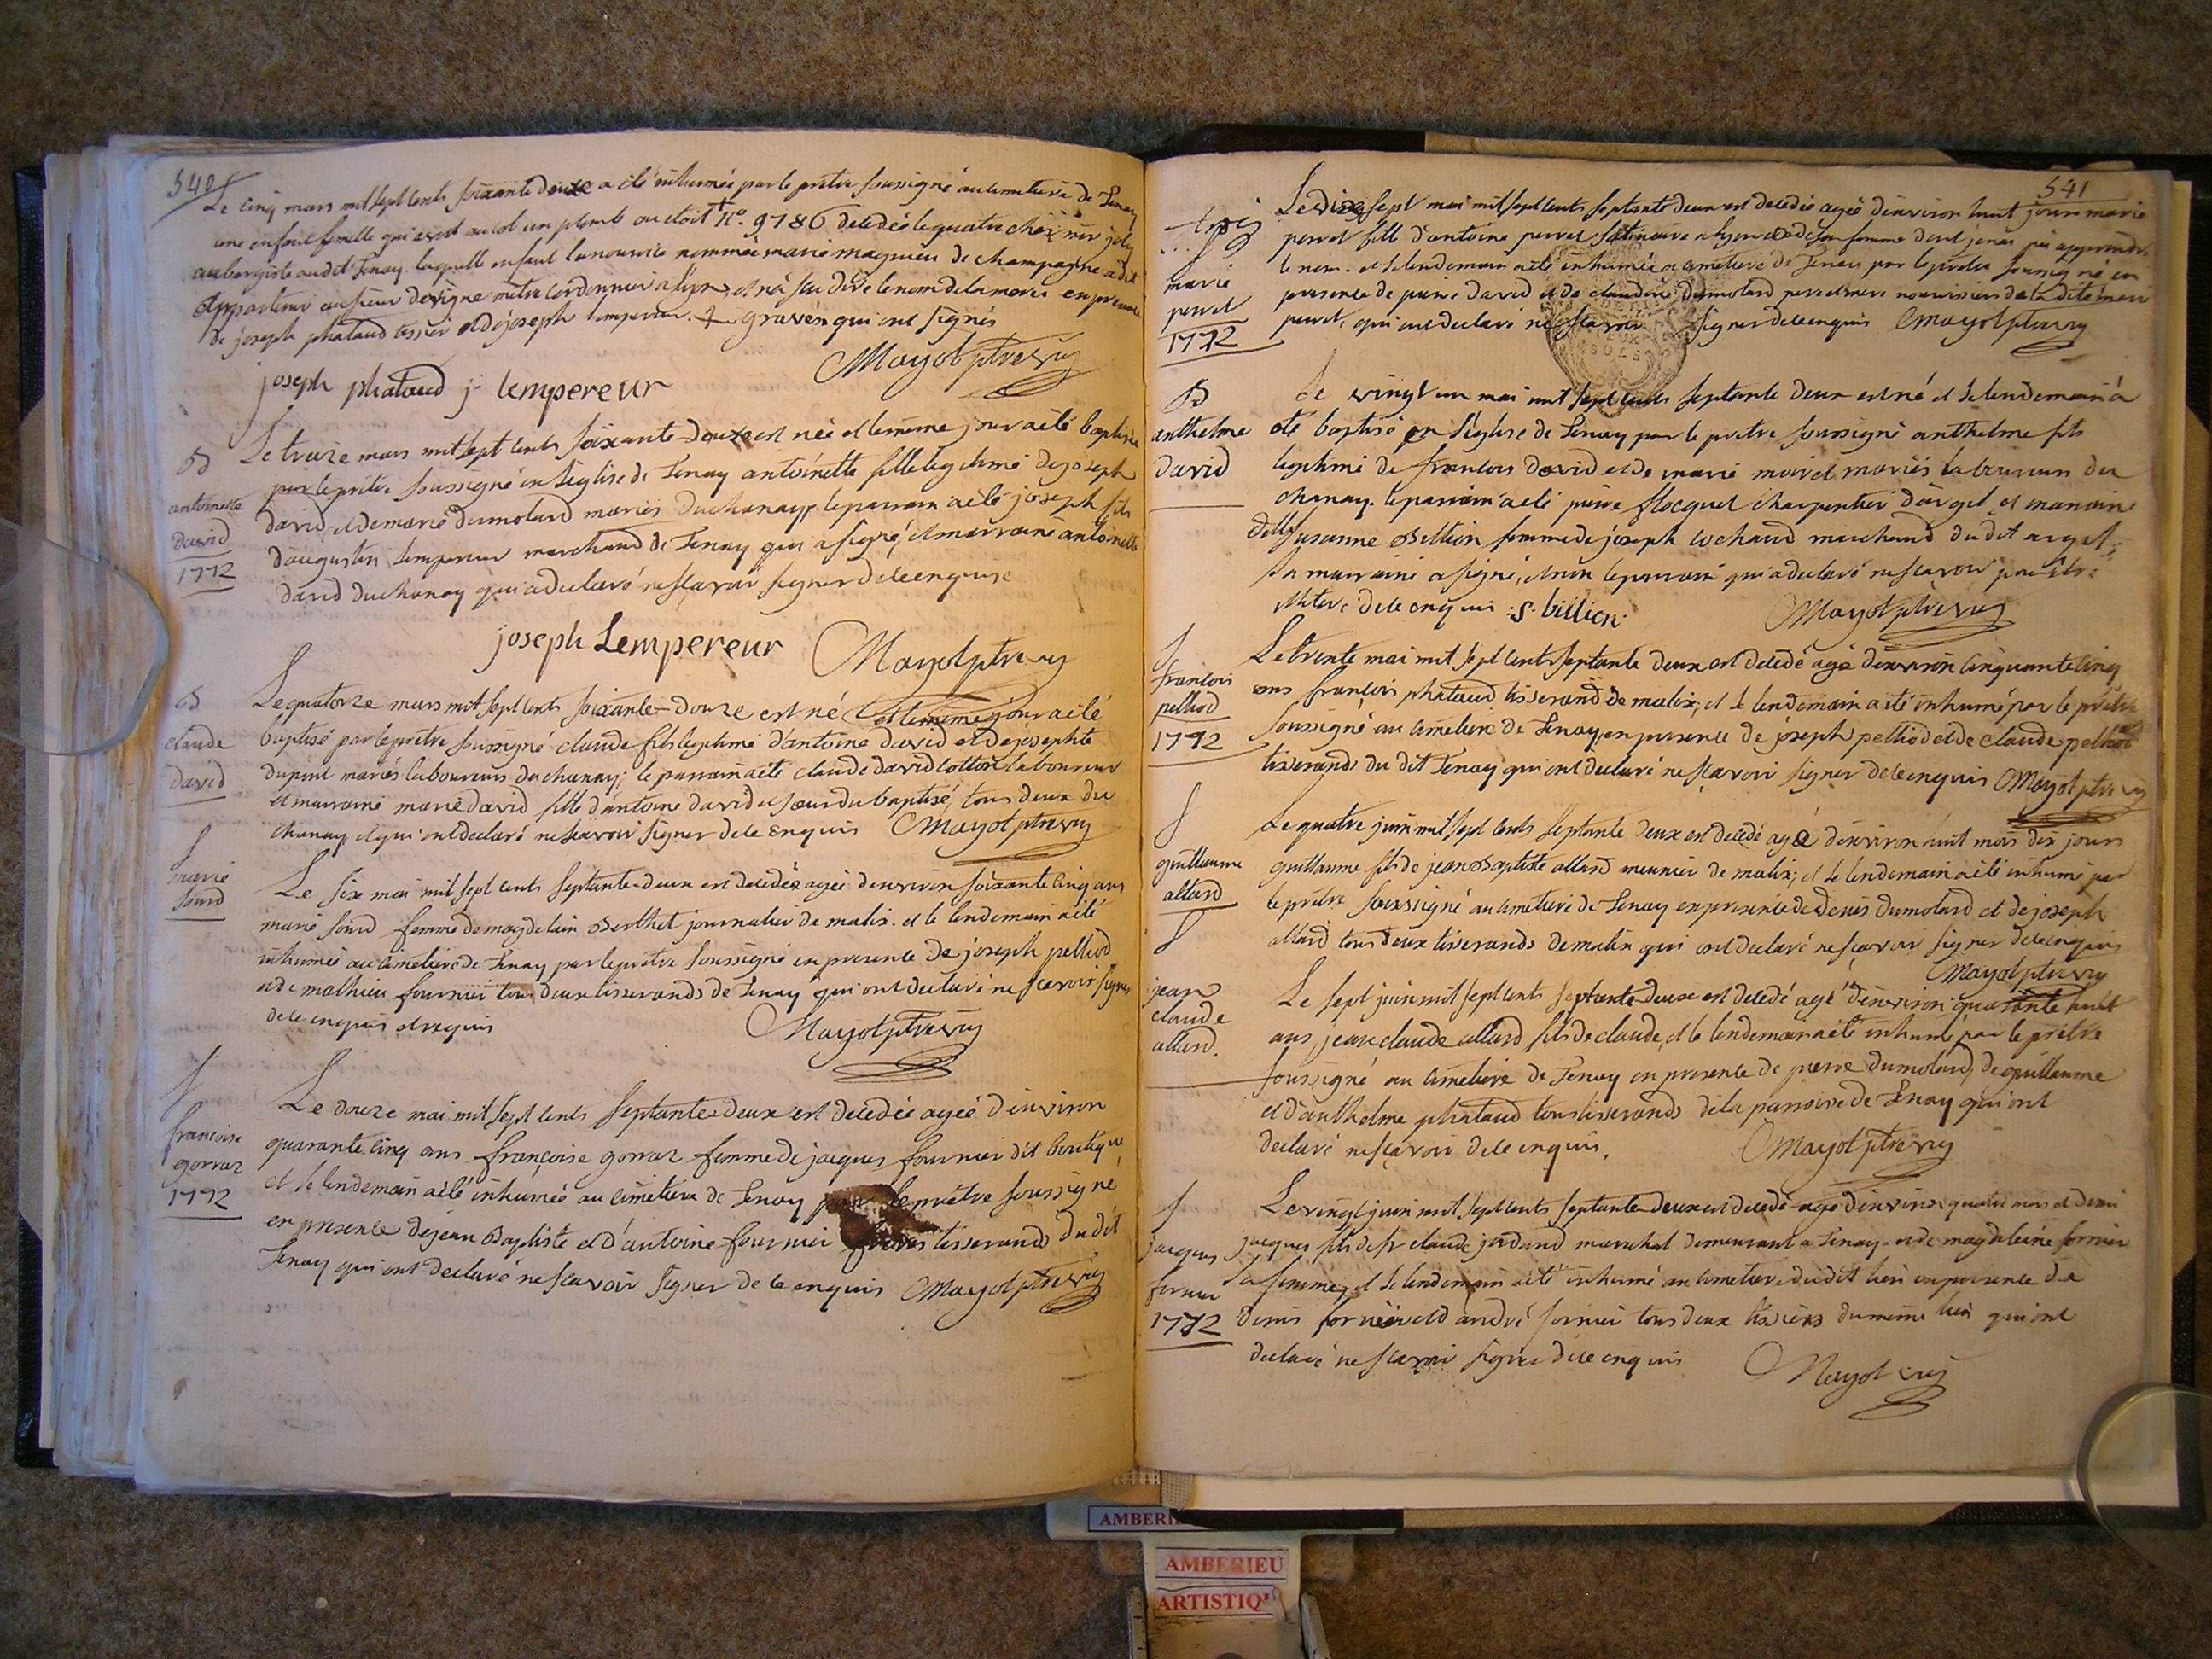 540
Le cinq mars mil sept cents soixante douze a été inhumée par le prêtre soussigné au cimetiere de Tenay
une enfant femelle qui avoit au col un plomb ou étoit N°. 9786 decedée le quatre chez
aubergiste audit Tenay laquelle enfant la nourrice nommée marie magnieu de champagne a dit
appartenir au sieur devigne maitre cordonnier a lyon, et n'a scu dire le nom de la mere en presence
de joseph phataud tissier et de joseph lempereur graveur qui ont signés
Mayot ptre vic
joseph phataud j. lempereur
B
antoinette
david
1772
Le treize mars mil sept cents soixante-douze est née et le meme jour a été baptisée
par le prêtre soussigné en l'eglise de Tenay antoinette fille legitime de joseph
david et de marie dumolard mariés du chanay, le parrain a été joseph fils
d'augustin lempereur marchand de Tenay qui a signé, et marraine antoinette
david du chanay qui a declaré ne sçavoir signer de ce enquise
joseph Lempereur Mayot ptre vic
B
claude
david
Le quatorze mars mil sept cents soixante-douze est né et le meme jour a été
baptisé par le prêtre soussigné claude fils legitime d'antoine david et de josephte
dupont mariés laboureurs du chanay; le parrain a été claude david cotton laboureur
et marraine marie david fille d'antoine david et soeur du baptisé, tous deux du
chanay, et qui ont declaré ne sçavoir signer de ce enquis Mayot ptre vic
S
marie
sourd
Le six mai mil sept cents septante-deux est decedée agée d'environ soixante cinq ans
marie sourd femme de magdelain Berthet journalier de malix. et le lendemain a été
inhumée au cimetiere de Tenay par le prêtre soussigné en presence de joseph pelliod
et de mathieu fournier tous deux tisserands de Tenay qui ont declaré ne sçavoir signer
de ce enquis et requis
Mayot ptre vic
S
francoise
gorraz
1772
Le douze mai mil sept cents septante-deux est decedée agée d'environ
quarante cinq ans françoise gorraz femme de jacques fournier dit boutique
et le lendemain a été inhumée au cimetiere de Tenay par le prêtre soussigné
en presence de jean Baptiste et d'antoine fournier freres tisserands dudit
Tenay qui ont declaré ne sçavoir signer de ce enquis Mayot ptre vic
541
marie
perret
1772
Le dix sept mai mil sept cents septante deux est decedée agée d'environ huit jours marie
perret fille d'antoine perret satinaire a lyon et de sa femme dont je n'ai pu apprendre
le nom. et le lendemain a été inhumée au cimetiere de Tenay par le prêtre soussigné en
presence de pierre david et de claudine dumolard pere et mere nourrissiers de la dite marie
perret, qui ont declaré ne sçavoir signer de ce enquis Mayot ptre vic
B
anthelme
david
Le vingt un mai mil sept cents septante deux est né et le lendemain a
été baptisé en l'eglise de Tenay par le prêtre soussigné anthelme fils
legitime de francois david et de marie moiret mariés laboureurs du
chanay. le parrain a été pierre flocquet charpentier d'argil, et marraine
delle Susanne Billion femme de joseph cochaud marchand dudit argil,
la marraine a signé, et non le parrain qui a declaré ne sçavoir pour être
illiteré de ce enquis :s. billion. Mayot ptre vic
S
francois
pelliod
1772
Le trente mai mil sept cents septante deux est decedé agé d'environ cinquante cinq
ans françois phataud tisserand de malix, et le lendemain a été inhumé par le prêtre
soussigné au cimetiere de Tenay, en presence de joseph pelliod et de claude pelliod
tisserands du dit Tenay qui ont declaré ne sçavoir signer de ce enquis Mayot ptre vic
S
guillaume
allard
Le quatre juin mil sept cents septante deux est decedé agé d'environ huit mois dix jours
guillaume fils de jean Baptiste allard meunier de malix, et le lendemain a été inhumé par
le prêtre soussigné au cimetiere de Tenay en presence de denis dumolard et de joseph
allard tous deux tisserands de malix qui ont declaré ne sçavoir signer de ce enquis
Mayot ptre vic
S
jean
claude
allard.
Le sept juin mil sept cents septante-deux est decedé agé d'environ quarante huit
ans, jean claude allard fils de claude, et le lendemain a été inhumé par le prêtre
soussigné au cimetiere de Tenay en presence de pierre dumolard, de guillaume
et d'anthelme phataud tous tisserands de la parroisse de Tenay qui ont
declaré ne sçavoir de ce enquis. Mayot ptre vic
S
jacques
fornier
1772
Le vingt juin mil sept cents septante-deux est decedé agé d'environ quatre mois et demi
jacques fils de sr claude marechal demeurant a Tenay et de magdeleine fornier
sa femme, et le lendemain a été inhumé au cimetiere dudit lieu en presence de
denis fornier et d'andré fornier tous deux tissiers du meme lieu qui ont
declaré ne sçavoir signer de ce enquis Mayot vic
AMBERIEU
ARTISTIQ